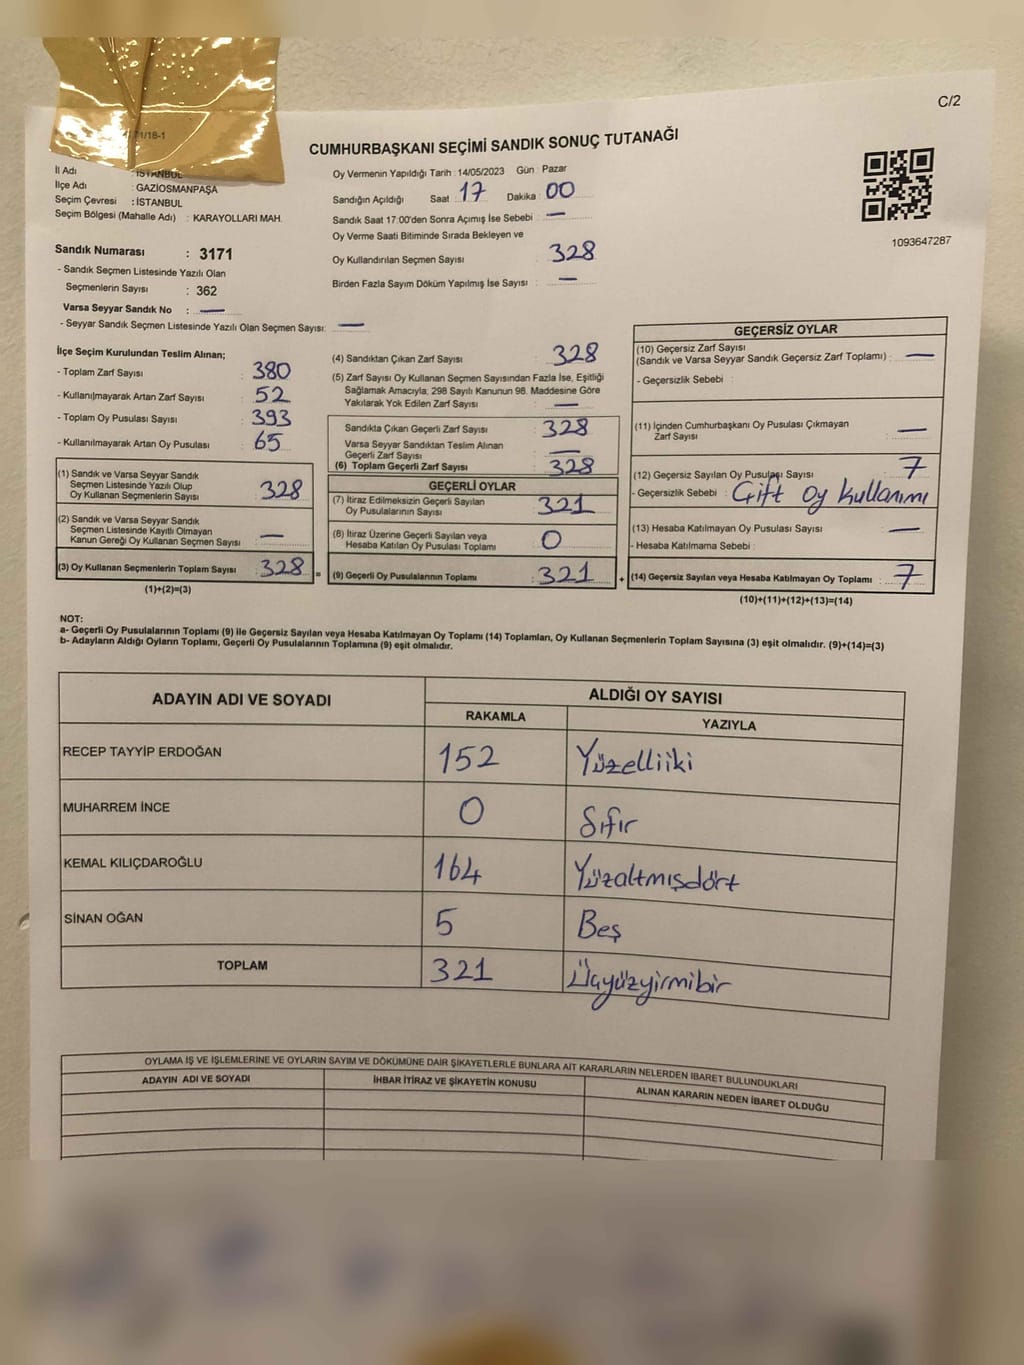 C/2
1/18-1
CUMHURBAŞKANI SEÇİMİ SANDIK SONUÇ TUTANAĞI
İl Adı : İSTANBUL
İlçe Adı : GAZİOSMANPAŞA
Seçim Çevresi : İSTANBUL
Seçim Bölgesi (Mahalle Adı) : KARAYOLLARI MAH.
Sandık Numarası : 3171
- Sandık Seçmen Listesinde Yazılı Olan
Seçmenlerin Sayısı : 362
Varsa Seyyar Sandık No : —
- Seyyar Sandık Seçmen Listesinde Yazılı Olan Seçmen Sayısı: —
Oy Vermenin Yapıldığı Tarih : 14/05/2023 Gün : Pazar
Sandığın Açıldığı Saat 17 Dakika : 00
Sandık Saat 17:00'den Sonra Açımış İse Sebebi : —
Oy Verme Saati Bitiminde Sırada Bekleyen ve
Oy Kullandırılan Seçmen Sayısı : 328
Birden Fazla Sayım Döküm Yapılmış İse Sayısı : —
1093647287
İlçe Seçim Kurulundan Teslim Alınan;
- Toplam Zarf Sayısı : 380
- Kullanılmayarak Artan Zarf Sayısı : 52
- Toplam Oy Pusulası Sayısı : 393
- Kullanılmayarak Artan Oy Pusulası : 65
(1) Sandık ve Varsa Seyyar Sandık
Seçmen Listesinde Yazılı Olup
Oy Kullanan Seçmenlerin Sayısı : 328
(2) Sandık ve Varsa Seyyar Sandık
Seçmen Listesinde Kayıtlı Olmayan
Kanun Gereği Oy Kullanan Seçmen Sayısı : —
(3) Oy Kullanan Seçmenlerin Toplam Sayısı : 328 =
(1)+(2)=(3)
(4) Sandıktan Çıkan Zarf Sayısı : 328
(5) Zarf Sayısı Oy Kullanan Seçmen Sayısından Fazla İse, Eşitliği
Sağlamak Amacıyla, 298 Sayılı Kanunun 98. Maddesine Göre
Yakılarak Yok Edilen Zarf Sayısı : —
Sandıkta Çıkan Geçerli Zarf Sayısı : 328
Varsa Seyyar Sandıktan Teslim Alınan
Geçerli Zarf Sayısı : —
(6) Toplam Geçerli Zarf Sayısı : 328
GEÇERLİ OYLAR
(7) İtiraz Edilmeksizin Geçerli Sayılan
Oy Pusulalarının Sayısı : 321
(8) İtiraz Üzerine Geçerli Sayılan veya
Hesaba Katılan Oy Pusulası Toplamı : 0
(9) Geçerli Oy Pusulalarının Toplamı : 321 +
GEÇERSİZ OYLAR
(10) Geçersiz Zarf Sayısı
(Sandık ve Varsa Seyyar Sandık Geçersiz Zarf Toplamı) : —
- Geçersizlik Sebebi :
(11) İçinden Cumhurbaşkanı Oy Pusulası Çıkmayan
Zarf Sayısı : —
(12) Geçersiz Sayılan Oy Pusulası Sayısı : 7
- Geçersizlik Sebebi : Çift Oy Kullanımı
(13) Hesaba Katılmayan Oy Pusulası Sayısı : —
- Hesaba Katılmama Sebebi :
(14) Geçersiz Sayılan veya Hesaba Katılmayan Oy Toplamı : 7
(10)+(11)+(12)+(13)=(14)
NOT:
a- Geçerli Oy Pusulalarının Toplamı (9) ile Geçersiz Sayılan veya Hesaba Katılmayan Oy Toplamı (14) Toplamları, Oy Kullanan Seçmenlerin Toplam Sayısına (3) eşit olmalıdır. (9)+(14)=(3)
b- Adayların Aldığı Oyların Toplamı, Geçerli Oy Pusulalarının Toplamına (9) eşit olmalıdır.
ADAYIN ADI VE SOYADI ALDIĞI OY SAYISI
RAKAMLA YAZIYLA
RECEP TAYYİP ERDOĞAN 152 Yüzelliiki
MUHARREM İNCE 0 Sıfır
KEMAL KILIÇDAROĞLU 164 Yüzaltmışdört
SİNAN OĞAN 5 Beş
TOPLAM 321 Üçyüzyirmibir
OYLAMA İŞ VE İŞLEMLERİNE VE OYLARIN SAYIM VE DÖKÜMÜNE DAİR ŞİKAYETLERLE BUNLARA AİT KARARLARIN NELERDEN İBARET BULUNDUKLARI
ADAYIN ADI VE SOYADI İHBAR İTİRAZ VE ŞİKAYETİN KONUSU ALINAN KARARIN NEDEN İBARET OLDUĞU